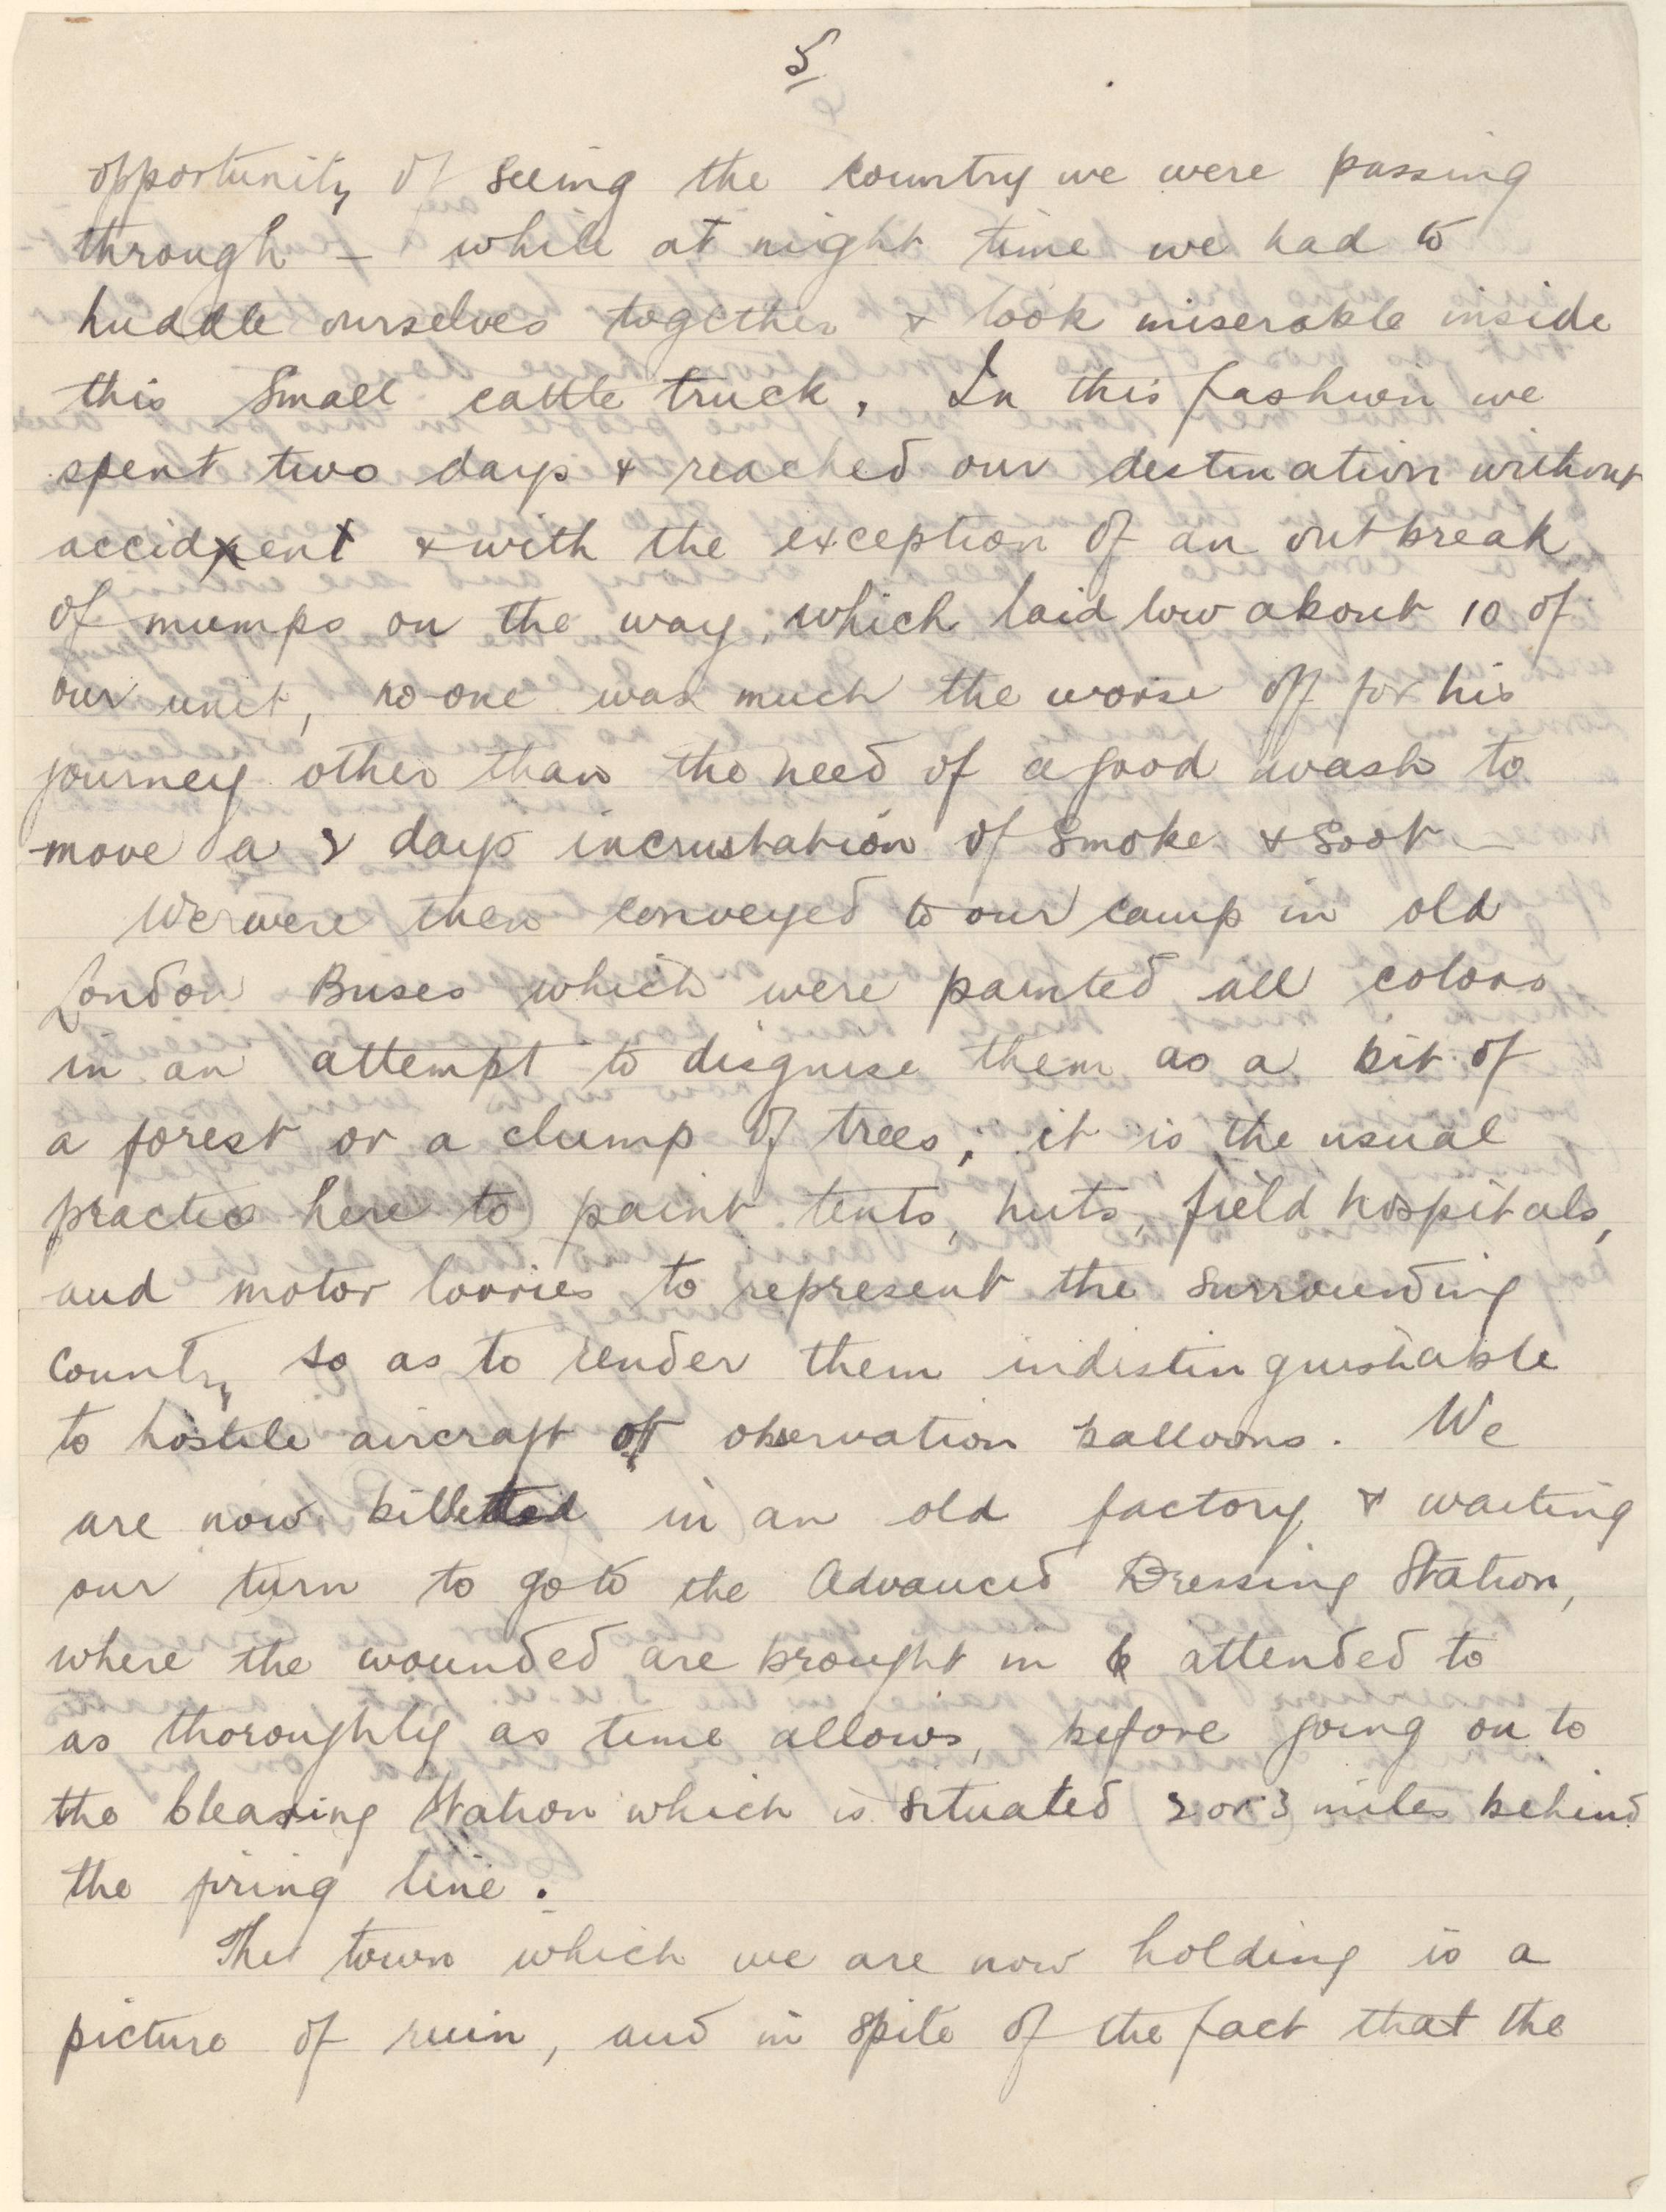 5
opportunity of seeing the country we were passing
through – while at night time we had to
huddle ourselves together & look miserable inside
this small cattle truck. In this fashion we
spent two days & reached our destination without
accident & with the exception of an outbreak
of mumps on the way, which laid low about 10 of
our unit, no-one was much the worse off for his
journey other than the need of a good wash to
move a 2 days incrustation of smoke & soot –
We were then conveyed to our camp in old
London Buses which were painted all colors
in an attempt to disguise them as a bit of
a forest or a clump of trees; it is the usual
practice here to paint tents, huts, field hospitals,
and motor lorries to represent the surrounding
country so as to render them indistinguishable
to hostile aircraft or observation balloons. We
are now billetted in an old factory & waiting
our turn to go to the Advanced Dressing Station,
where the wounded are brought in & attended to
as thoroughly as time allows, before going on to
the Clearing Station which is situated 2 or 3 miles behind
the firing line.
The town which we are now holding is a
picture of ruin, and in spite of the fact that the